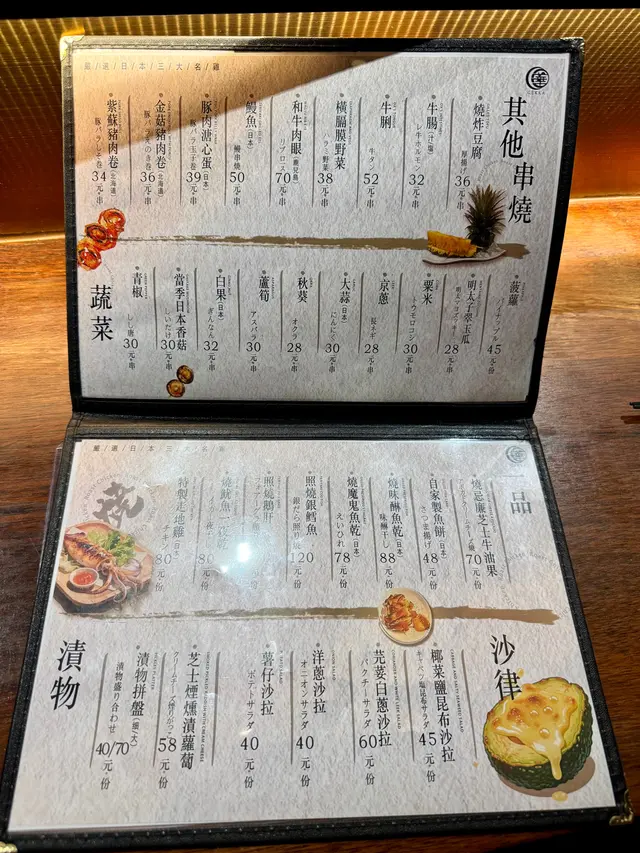 嚴/選/日/本/三/大/名/雞
其他串燒
燒炸豆腐
厚揚げ
36元·串
牛腸(汁燒)
レ牛ホルモン
32元·串
牛脷
牛タン
52元·串
橫膈膜野菜
ハラミ野菜
38元·串
和牛肉眼(鹿兒島)
リブロース
70元·串
鰻魚(日本)
鰻串燒
50元·串
豚肉溏心蛋(日本)
豚バラ玉子巻
39元·串
金菇豬肉卷(北海道)
豚バラえのき巻
36元·串
紫蘇豬肉卷(北海道)
豚バラしそ巻
34元·串
菠蘿
パイナップル
45元·份
明太子翠玉瓜
28元·串
粟米
トウモロコシ
30元·串
京蔥
長ネギ
28元·串
大蒜(日本)
にんにく
30元·串
秋葵
オクラ
28元·串
蘆筍
アスパラ
30元·串
白果(日本)
ぎんなん
32元·串
當季日本香菇
しいたけ
30元·串
青椒
しし唐
30元·串
蔬菜
嚴/選/日/本/三/大/名/雞
一品
燒忌廉芝士牛油果
70元·份
自家製魚餅(日本)
さつま揚げ
48元·份
燒味醂魚乾(日本)
味醂干し
88元·份
燒魔鬼魚乾(日本)
えいひれ
78元·份
照燒銀鱈魚
銀だら照り燒
120元·份
照燒鵝肝
元·份
燒魷魚一夜干
80元·份
特製走地雞(日本)
80元·份
沙律
椰菜鹽昆布沙拉
キャベツ塩昆布サラダ
45元·份
芫荽白蔥沙拉
パクチーサラダ
60元·份
洋蔥沙拉
オニオンサラダ
40元·份
薯仔沙拉
ポテトサラダ
40元·份
芝士煙燻漬蘿蔔
58元·份
漬物拼盤(細/大)
漬物盛り合わせ
40/70元·份
漬物